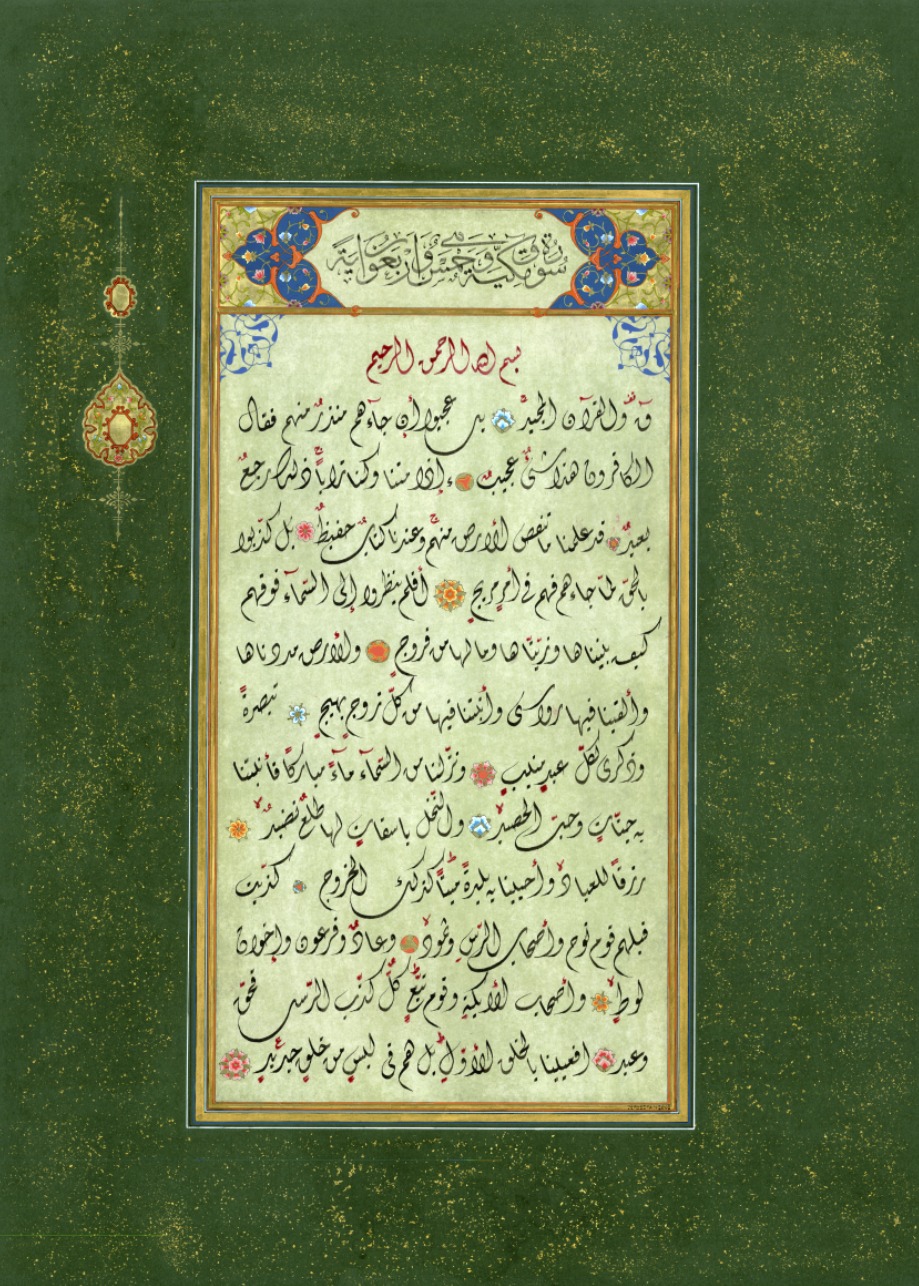 سورة ق مكية وهي خمس وأربعون اية
بسم الله الرحمن الرحيم
ق والقرآن المجيد بل عجبوا أن جاءهم منذر منهم فقال
الكافرون هذا شئ عجيب ءإذا متنا وكنا تراباً ذلك رجع
بعيد قد علمنا ما تنقص الأرض منهم وعندنا كتاب حفيظ بل كذّبوا
بالحق لمّا جاءهم فهم في أمرٍ مريجٍ أفلم ينظروا إلى السّماء فوقهم
كيف بنيناها وزيّنّاها وما لها من فروج والأرض مددناها
وألقينا فيها رواسي وأنبتنا فيها من كلّ زوجٍ بهيجٍ تبصرةً
وذكرى لكلّ عبدٍ منيبٍ ونزّلنا من السّماء ماءً مباركاً فأنبتنا
به جنّاتٍ وحبّ الحصيد والنّخل باسقاتٍ لها طلعٌ نضيدٌ
رزقاً للعباد وأحيينا به بلدةً ميتاً كذلك الخروج كذّبت
قبلهم قوم نوح وأصحاب الرّسّ وثمود وعادٌ وفرعون وإخوان
لوطٍ وأصحاب الأيكة وقوم تبّعٍ كلٌّ كذّب الرّسل فحقّ
وعيد افعيينا بالخلق الأوّل بل هم في لبسٍ من خلقٍ جديدٍ